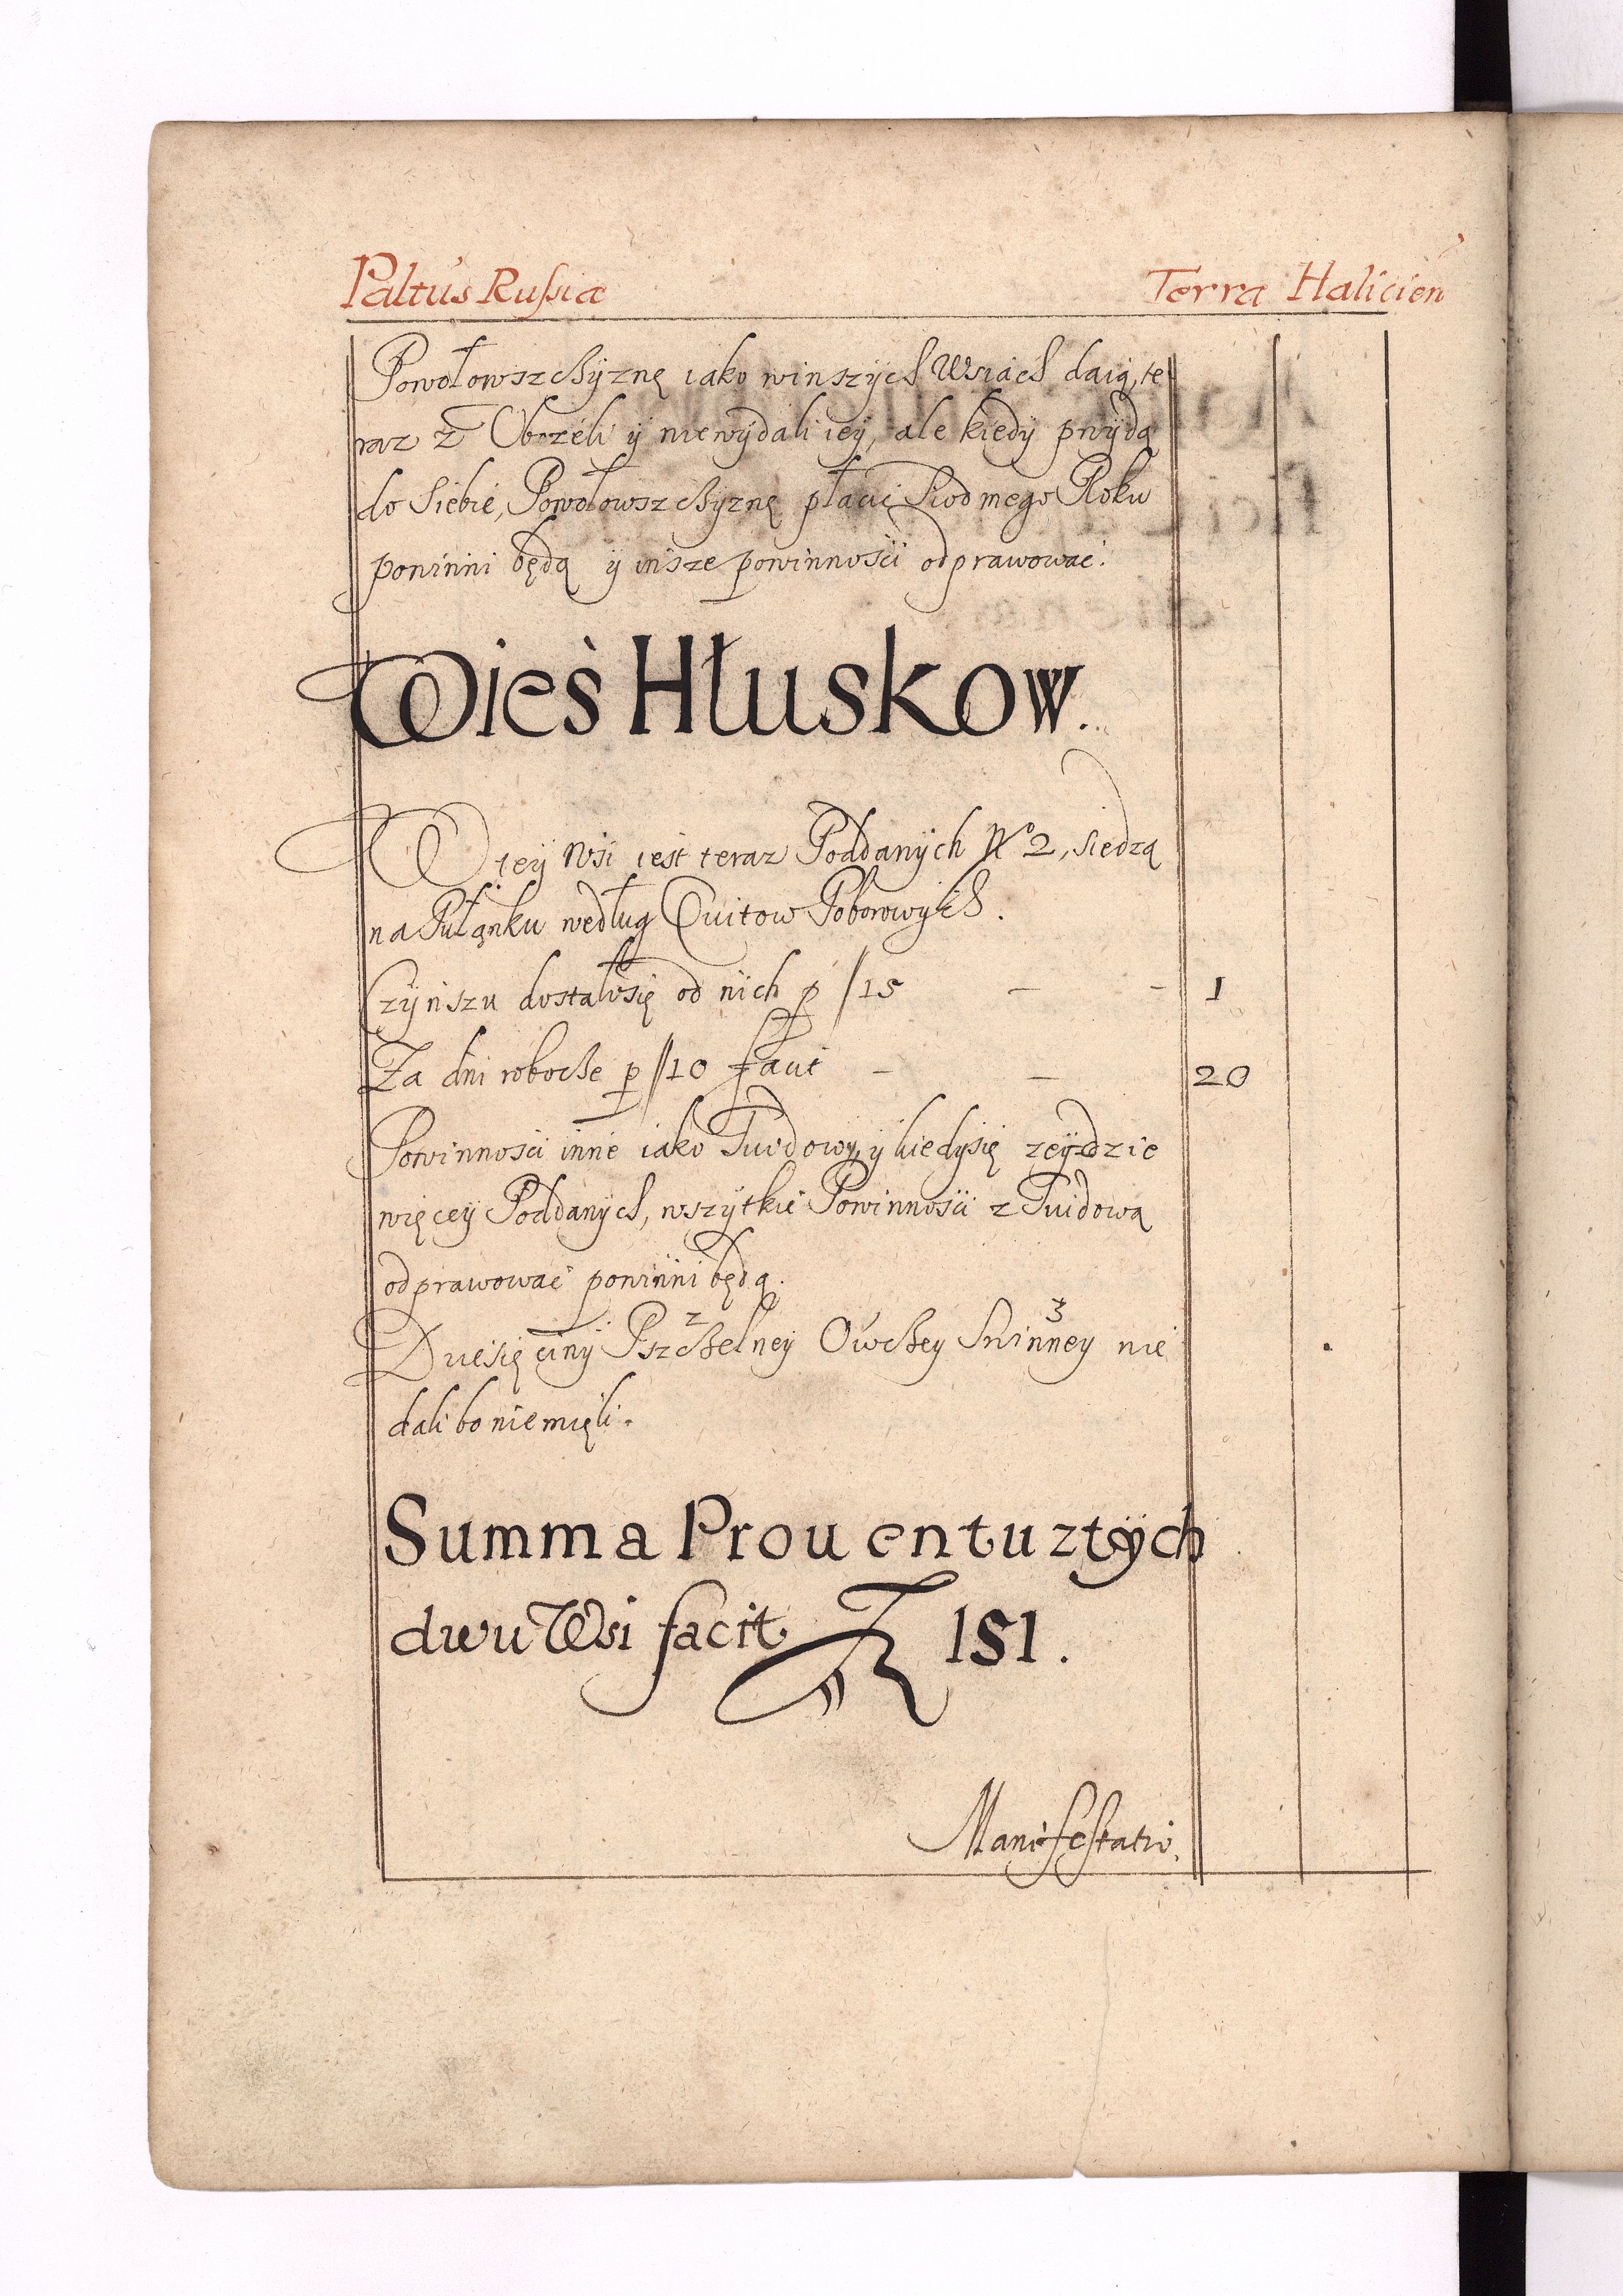 Paltus Russiæ Terra Halicien
Powołowszchyznę iako winszych Wsiach daią, te
raz z Obozeli y niewydali iey, ale kiedy przydą
do Siebie, Powołowszchyznę płacić Siodmego Roku
powinni będą y insze powinności odprawować.
Wieś Hłuskow.
W tey Wsi iest teraz Poddanych No 2, siedzą
na Pułanku według Quitow Poborowych.
Czynszu dostało się od nich p ſ 15 — — 1
Za dni roboche p ſſ 10 facit — — 20
Powinności inne iako Tuidowy, y kiedysię zeydzie
więcey Poddanych, wszytkie Powinności z Tuidową
odprawować powinni będą.
Dziesięciny Pszchelney Owchey Swinney nie
dali bo niemięli.
Summa Prouentu ztych
dwu Wsi facit 151.
Manifestatio.